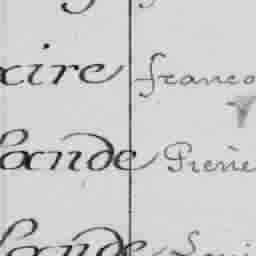 aire franco
lande Pierre
lande Loui